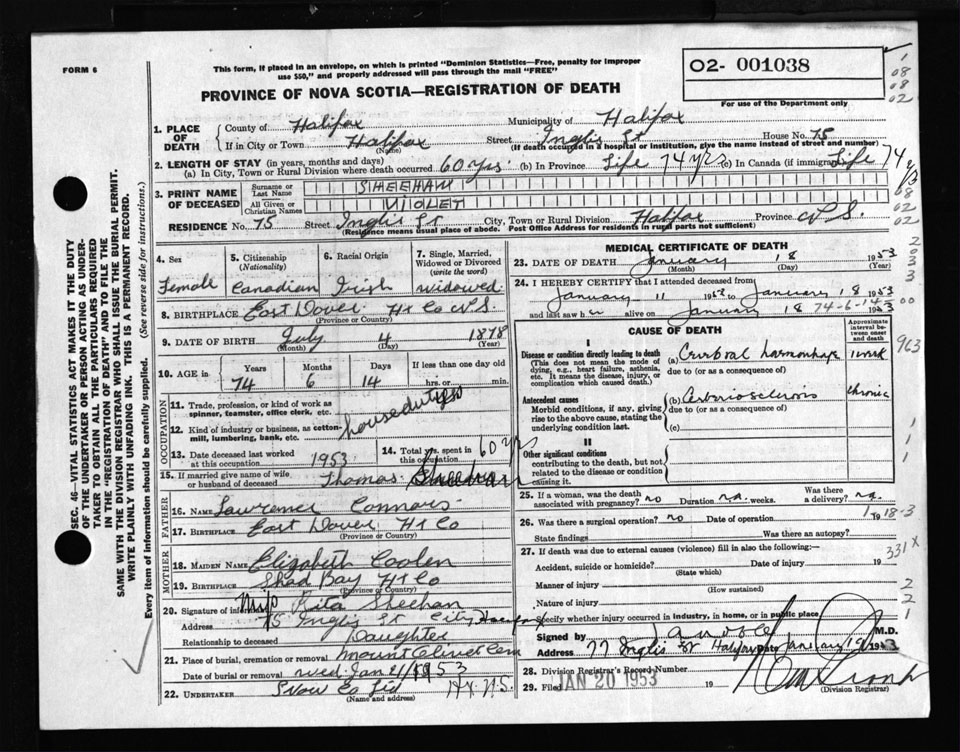 FORM 6
This form, if placed in an envelope, on which is printed "Dominion Statistics—Free, penalty for improper
use $50," and properly addressed will pass through the mail "FREE"
O2- 001038
PROVINCE OF NOVA SCOTIA—REGISTRATION OF DEATH
For use of the Department only
1. PLACE OF DEATH
County of Halifax Municipality of Halifax
If in City or Town Halifax (Name) Street Inglis St House No. 75
(If death occurred in a hospital or institution, give the name instead of street and number)
2. LENGTH OF STAY (in years, months and days)
(a) In City, Town or Rural Division where death occurred 60 yrs. (b) In Province Life 74 yrs (c) In Canada (if immigrant) Life 74
3. PRINT NAME OF DECEASED
Surname or Last Name SHEEHAN
All Given or Christian Names VIOLET
RESIDENCE No. 75 Street Inglis St City, Town or Rural Division Halifax Province N.S.
(Residence means usual place of abode. Post Office Address for residents in rural parts not sufficient)
4. Sex Female
5. Citizenship (Nationality) Canadian
6. Racial Origin Irish
7. Single, Married, Widowed or Divorced (write the word) widowed
8. BIRTHPLACE East Dover Hx Co N.S.
(Province or Country)
9. DATE OF BIRTH July 4 1878
(Month) (Day) (Year)
10. AGE in Years 74 Months 6 Days 14 If less than one day old hrs. or min.
OCCUPATION
11. Trade, profession, or kind of work as spinner, teamster, office clerk, etc.
housedutys
12. Kind of industry or business, as cotton-mill, lumbering, bank, etc.
13. Date deceased last worked at this occupation 1953
14. Total yrs. spent in this occupation 60 yrs
15. If married give name of wife or husband of deceased Thomas Sheehan
FATHER
16. NAME Lawrence Connors
17. BIRTHPLACE East Dover Hx Co
(Province or Country)
MOTHER
18. MAIDEN NAME Elizabeth Coolen
19. BIRTHPLACE Shad Bay Hx Co
(Province or Country)
20. Signature of informant Miss Rita Sheehan
Address 75 Inglis St City Halifax
Relationship to deceased Daughter
21. Place of burial, cremation or removal Mount Olivet Cem
Date of burial or removal Wed Jan 21/1953
22. UNDERTAKER Snow Co Ltd Hx N.S.
(Name and address)
MEDICAL CERTIFICATE OF DEATH
23. DATE OF DEATH January 18 1953
(Month) (Day) (Year)
24. I HEREBY CERTIFY that I attended deceased from
January 11 1953 to January 18 1953
and last saw her alive on January 18 1953
74-6-14
CAUSE OF DEATH
Approximate interval between onset and death
I
Disease or condition directly leading to death (a) Cerebral haemorrhage 1 week
(This does not mean the mode of dying, e.g., heart failure, asthenia, etc. It means the disease, injury, or complication which caused death.)
due to (or as a consequence of)
Antecedent causes (b) Arteriosclerosis chronic
Morbid conditions, if any, giving rise to the above cause, stating the underlying condition last.
due to (or as a consequence of)
(c)
II
Other significant conditions
contributing to the death, but not related to the disease or condition causing it.
25. If a woman, was the death associated with pregnancy? no Duration na. weeks. Was there a delivery? na.
26. Was there a surgical operation? no Date of operation 19
State findings Was there an autopsy?
27. If death was due to external causes (violence) fill in also the following:—
Accident, suicide or homicide? Date of injury 19
(State which)
Manner of injury
(How sustained)
Nature of injury
Specify whether injury occurred in industry, in home, or in public place
Signed by M.D.
Address 77 Inglis St Halifax Date January 19 1953
28. Division Registrar's Record Number
29. Filed JAN 20 1953 19
(Division Registrar)
963
331 X
SEC. 46—VITAL STATISTICS ACT MAKES IT THE DUTY
OF THE UNDERTAKER OR PERSON ACTING AS UNDER-
TAKER TO OBTAIN ALL THE PARTICULARS REQUIRED
IN THE "REGISTRATION OF DEATH" AND TO FILE THE
SAME WITH THE DIVISION REGISTRAR WHO SHALL ISSUE THE BURIAL PERMIT.
WRITE PLAINLY WITH UNFADING INK. THIS IS A PERMANENT RECORD.
Every item of information should be carefully supplied. (See reverse side for instructions.)